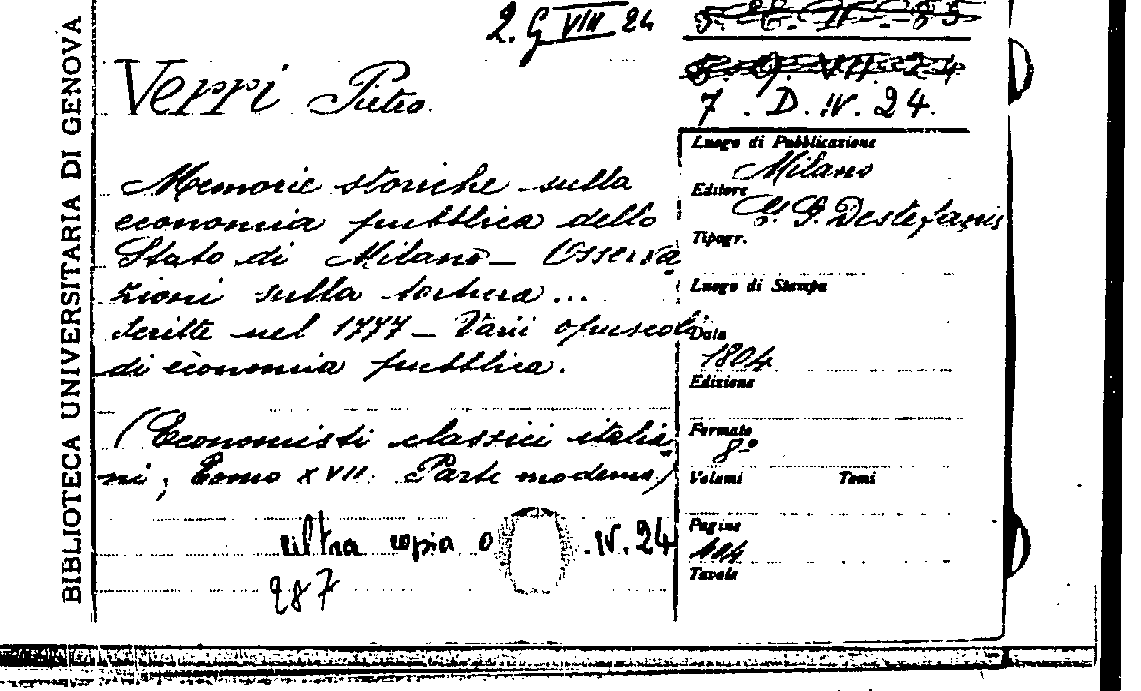 BIBLIOTECA UNIVERSITARIA DI GENOVA
2. G VIII 24
7 . D. IV. 24.
Verri Pietro.
Memorie storiche sulla
economia pubblica dello
Stato di Milano - Osserva
zioni sulla tortura...
scritte nel 1777 - Varii opuscoli
di economia pubblica.
(Economisti classici italia
ni; Tomo XVII. Parte moderna)
altra copia
.IV.24
287
Luogo di Pubblicazione
Milano
Editore
G. G. Destefanis
Tipogr.
Luogo di Stampa
Data
1804
Edizione
Formato
8º
Volumi Tomi
Pagine
Tavole